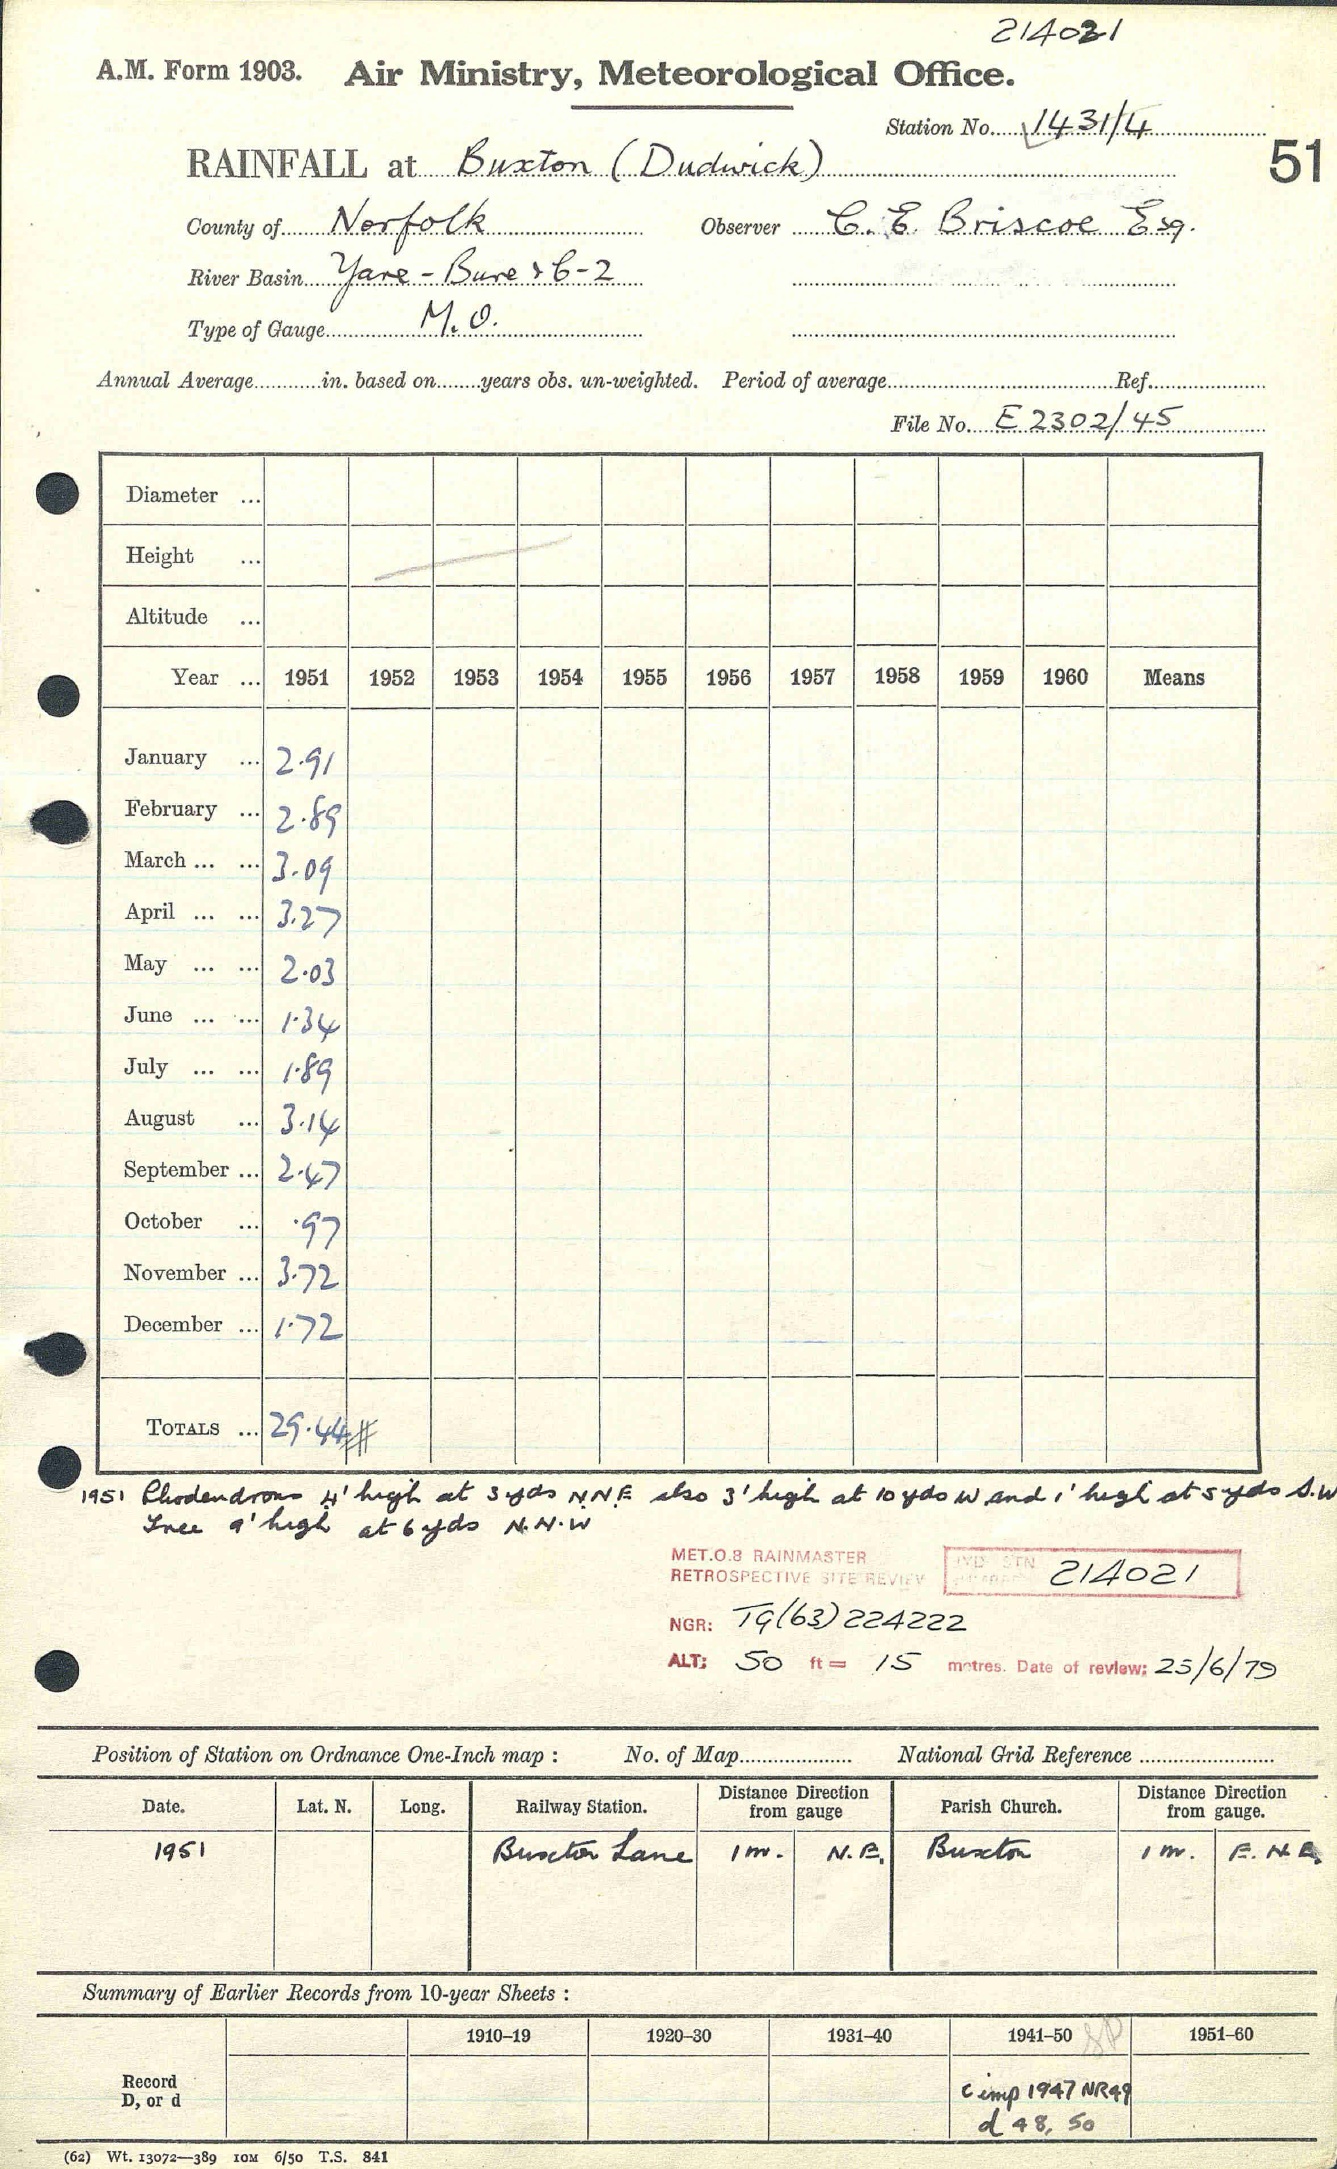 214021
A.M. Form 1903. Air Ministry, Meteorological Office.
Station No. 1431/4
51
RAINFALL at Buxton (Dudwick)
County of Norfolk Observer C. E. Briscoe Esq.
River Basin Yare - Bure & C-2
Type of Gauge M.O.
Annual Average in. based on years obs. un-weighted. Period of average Ref.
File No. E 2302/45
Diameter ...
Height ...
Altitude ...
Year ... 1951 1952 1953 1954 1955 1956 1957 1958 1959 1960 Means
January ... 2.91
February ... 2.89
March ... ... 3.09
April ... ... 3.27
May ... ... 2.03
June ... ... 1.34
July ... ... 1.89
August ... 3.14
September ... 2.47
October ... .97
November ... 3.72
December ... 1.72
TOTALS ... 29.44 #
1951 Rhodendrons 4' high at 3 yds N.N.E also 3' high at 10 yds W and 1' high at 5 yds S.W
Tree 9' high at 6 yds N.N.W
MET.O.8 RAINMASTER
RETROSPECTIVE SITE REVIEW STN 214021
NGR: TG(63)224222
ALT: 50 ft = 15 metres. Date of review: 25/6/79
Position of Station on Ordnance One-Inch map : No. of Map National Grid Reference
Date. Lat. N. Long. Railway Station. Distance Direction from gauge Parish Church. Distance Direction from gauge.
1951 Buxton Lane 1 m. N.E. Buxton 1 m. E.N.E.
Summary of Earlier Records from 10-year Sheets :
1910–19 1920–30 1931–40 1941–50 1951–60
Record
D, or d
c imp 1947 NR49
d 48, 50
(62) Wt. 13072—389 10M 6/50 T.S. 841